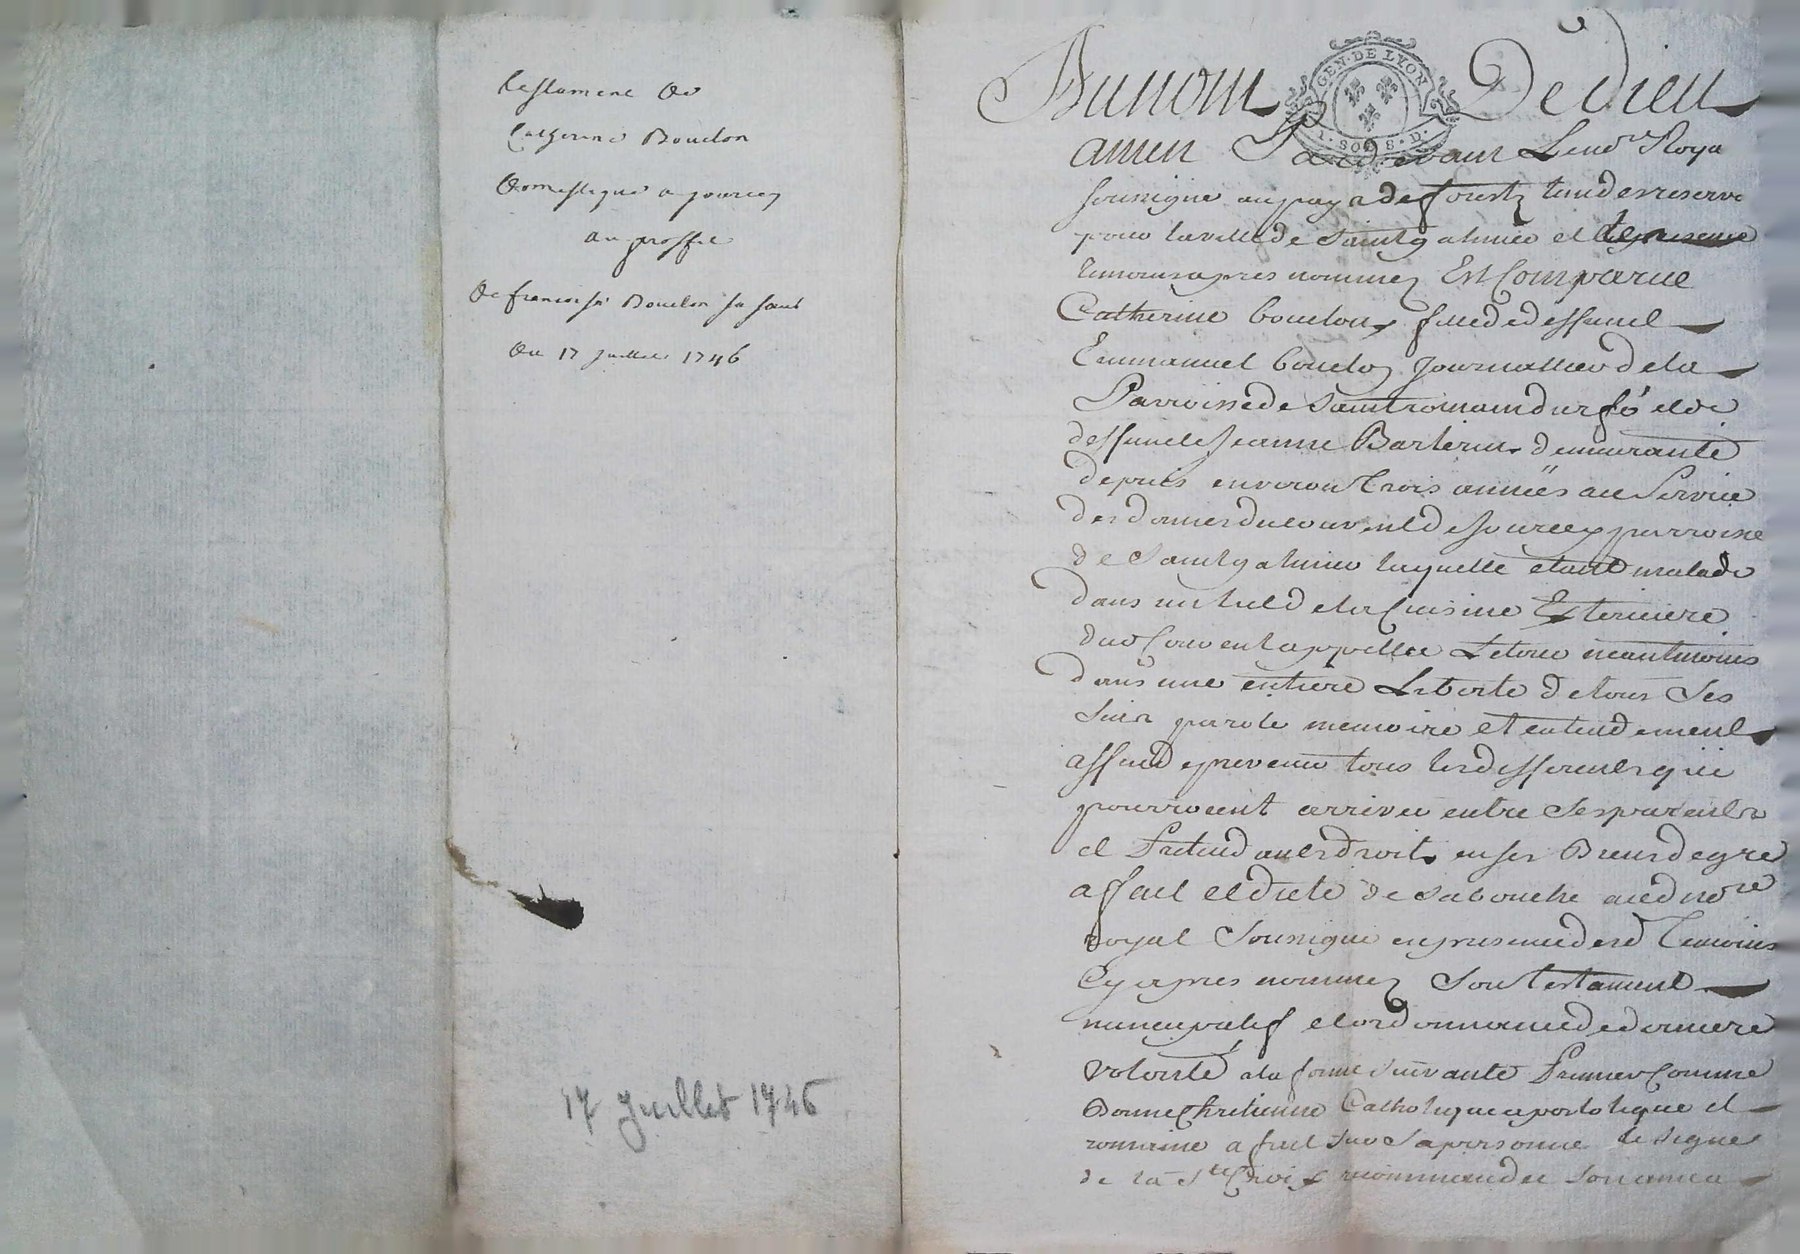 Testament de
Catherine Bouclon
domestique a jourcey
au proffit
de francoise Bouclon sa sœur
du 17 juillet 1746
17 Juillet 1746
GEN. DE LYON
1. SOLS 8. D.
Au nom De dieu
amen Pardevant Le no.re Roya
soussigné au pays de forestz tant des reserve
pour la ville de Saint galmier et
temoins apres nommez Est Comparue
Catherine bouclon fille de deffunct
Emmanuel bouclon journallier de la
Parroisse de Saint romain durfé et de
deffuncte Jeanne demeurante
depuis environ trois années au Service
des dames du couvent de jourcey parroisse
de Saint galmier laquelle étant malade
dans un lict de la Cuisine Exterieure
dud Couvent appellée Le tour neantmoins
dans une entiere Liberté de tous Ses
Sens parole memoire et entendement
affin de prevenir tous les differents qui
pourroient arriver entre Ses parents
et Pretendants droit en ses Biens de gré
a fait et dicté de sa bouche aud no.re
royal Soussigné en presence desd Temoins
Cy apres nommez Son testament
nuncupatif et ordonnance de derniere
volonté a la forme suivante Premier Comme
Bonne Chretienne Catholique apostolique et
romaine a fait sur Sa personne le signe
de la S.te Croix recommandée son ame a